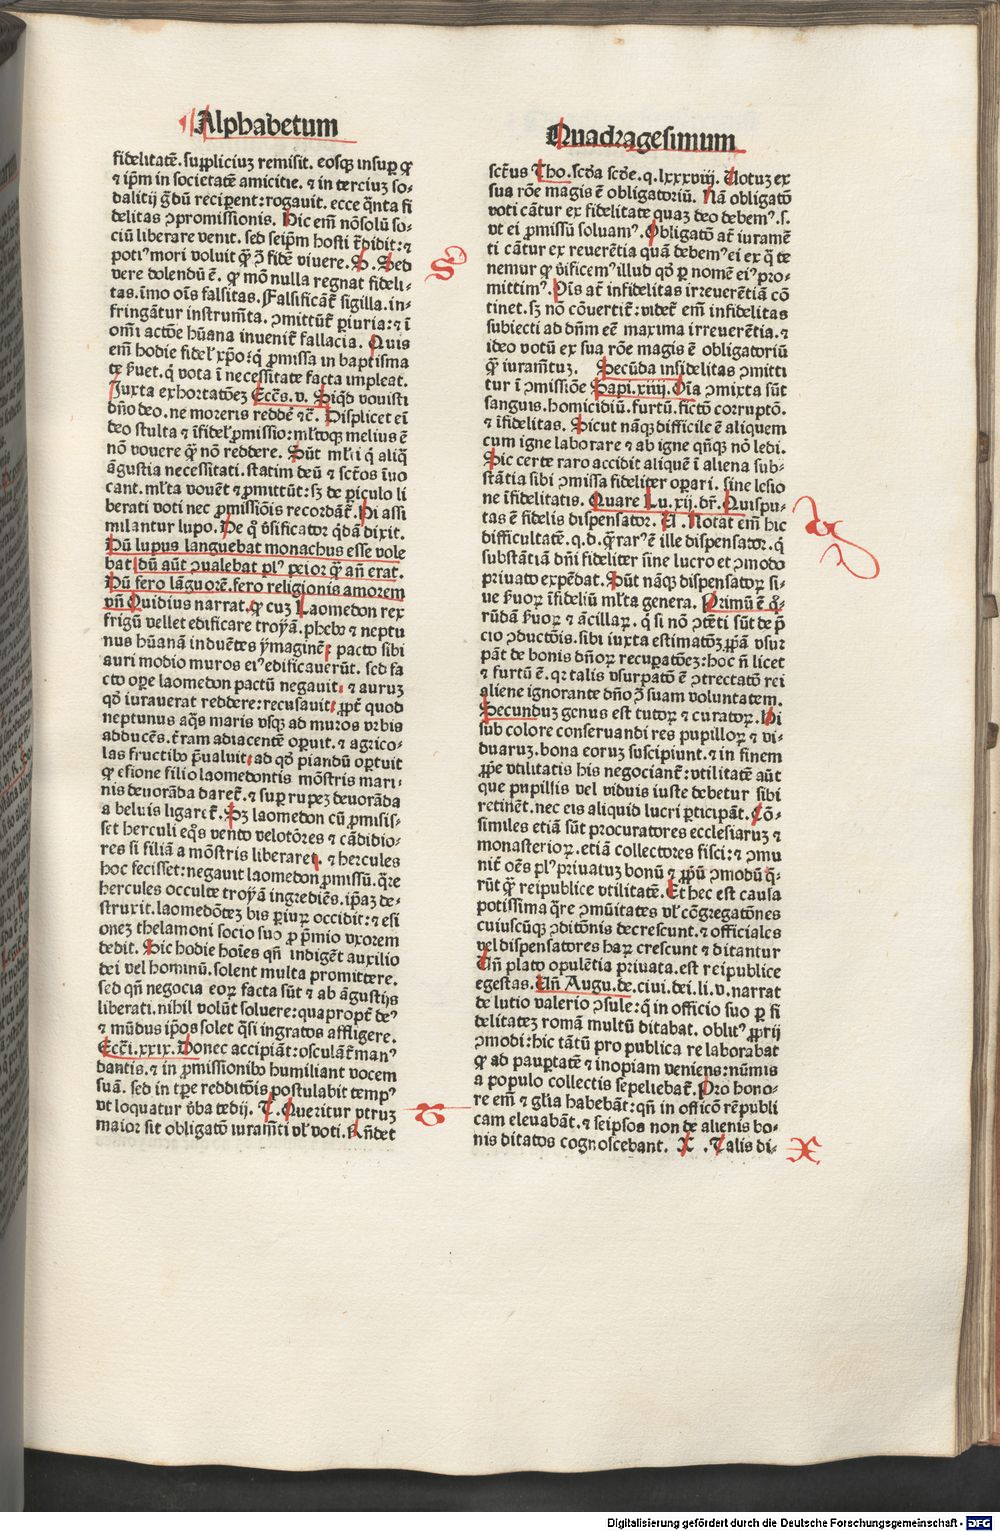 Alphabetum
fidelitatē. suppliciuʒ remisit. eosqʒ insuꝑ ꝙ
⁊ ip̄m in societatē amicitie. ⁊ in terciuʒ so⸗
dalitij g̈dū recipent: rogauit. ecce q̄nta fi
delitas ꝓmissionis. Hic em̄ nōsolū so⸗
ciū liberare venit. sed seip̄m hosti t̄didit: ⁊
potiꝰ mori voluit q̄ꝫ ꝯ̄ fidē viuere. S. Sed
vere dolendū ē. ꝙ mō nulla regnat fideli⸗
tas. imo oīs falsitas. Falsificāt̄ sigilla. in⸗
fringātur instrum̄ta. ꝯmittūt̄ ꝑiuria: ⁊ ī
om̄i actōe hūana inuenit̄ fallacia. Quis
em̄ hodie fidel̓ xp̄o: q̇ ꝓmissa in baptisma
te ẜuet. q̇ vota ī necessitate facta impleat.
Iuxta exhortatōeʒ Eccs̄. v. Siq̇d vouisti
dn̄o deo. ne moreris reddē ⁊c̄. Displicet eī
deo stulta ⁊ īfidel̓ ꝓmissio: ml̓toqʒ melius ē
nō vouere q̄ꝫ nō reddere. Sūt ml̓ti q̇ aliq̄
āgustia necessitati. statim deū ⁊ sctōs īuo
cant. ml̓ta vouēt ⁊ ꝓmittūt: sʒ de ꝑiculo li
berati voti nec ꝓmissiōis recordāt̄. Hi assi
milantur lupo. De q̊ v̓sificator q̇dā dixit.
Dū lupus languebat monachus esse vole
bat dū aūt ꝯualebat pl̓ꝰ peior q̄ꝫ an̄ erat.
Dū fero lāguorē. fero religionis amorem
vn̄ Ouidius narrat. ꝙ cuʒ Laomedon rex
frigū vellet edificare troyā. phebꝰ ⁊ neptu
nus hūanā induētes ymaginē: pacto sibi
auri modio muros eiꝰ edificauerūt. sed fa
cto oꝑe laomedon pactū negauit. ⁊ auruʒ
qđ iurauerat reddere: recusauit: ꝓpt̄ quod
neptunus aq̄s maris vsqʒ ad muros vrbis
adducēs. t̄ram adiacentē oꝑuit. ⁊ agrico⸗
las fructibꝰ pͣualuit: ad qđ piandū oꝑtuit
ꝙ esione filio laomedontis mōstris mari⸗
nis deuorāda daret̄. ⁊ suꝑ rupeʒ deuorāda
a beluis ligaret̄. Sʒ laomedon cū ꝓmisis⸗
set herculi eq̊s vento velotōres ⁊ cādidio⸗
res si filiā a mōstris liberaret. ⁊ hercules
hoc fecisset: negauit laomedon ꝓmissū. q̈re
hercules occulte troyā ingrediēs. ip̄aʒ de⸗
struxit. laomedōteʒ bis ꝑiuꝝ occidit: ⁊ esi
oneʒ thelamoni socio suo ꝓ pͥmio vxorem
dedit. Sic hodie hoīes qn̄ indigēt auxilio
dei vel hominū. solent multa promittere.
sed qn̄ negocia eoꝝ facta sūt ⁊ ab āgustijs
liberati. nihil volūt soluere: quapropt̄ deꝰ
⁊ mūdus ip̄os solet q̈si ingratos affligere.
Ecc̄i. xxix. Donec accipiāt: osculāt̄ manꝰ
dantis. ⁊ in ꝓmissionibꝰ humiliant vocem
suā. sed in tꝑe redditōis postulabit tempꝰ
vt loquatur v̓ba tedij. T. Queritur vtruʒ
maior sit obligatō iuram̄ti vl̓ voti. Rn̄det
S
v
Quadragesimum
sct̄us Tho. scd̄a scd̄e. q. lxxxviij. Uotuʒ ex
sua rōe magis ē obligatoriū. Nā obligatō
voti cātur ex fidelitate quaʒ deo debemꝰ. s.
vt ei ꝓmissū soluamꝰ. Obligatō at̄ iuramē
ti cātur ex reuerētia quā debemꝰ ei ex q̄ te
nemur ꝙ v̓ificemꝰ illud qđ ꝑ nomē eiꝰ pro⸗
mittimꝰ. Oīs at̄ infidelitas irreuerētiā cō
tinet. sʒ nō cōuertit̄: videt̄ em̄ infidelitas
subiecti ad dn̄m eē maxima irreuerētia. ⁊
ideo votū ex sua rōe magis ē obligatoriū
q̄ꝫ iuram̄tuʒ. Secūda infidelitas ꝯmitti
tur ī ꝯmissiōe Sapi. xiiij. Oīa ꝯmixta sūt
sanguis. homicidiū. furtū. fictō corruptō.
⁊ īfidelitas. Sicut nāqʒ difficile ē aliquem
cum igne laborare ⁊ ab igne qn̄qʒ nō ledi.
Sic certe raro accidit aliquē ī aliena sub⸗
stātia sibi ꝯmissa fideliter oꝑari. sine lesio
ne īfidelitatis. Quare Lu. xij. dr̄. Quispu⸗
tas ē fidelis dispensator. U. Notat em̄ hic
difficultatē. q. d. q̄ rarꝰ ē ille dispensator. q̇
substātiā dn̄i fideliter sine lucro et ꝯmodo
priuato expēdat. Sūt nāqʒ dispensatoꝝ si⸗
ue ẜuoꝝ īfideliū ml̓ta genera. Primū ē q̊⸗
rūdā ẜuoꝝ ⁊ ācillaꝝ. q̇ si nō ꝯtēti sūt de p̄
cio ꝯductōis. sibi iuxta estimatōeʒ ꝓpā vsur
pāt de bonis dn̄oꝝ recuꝑatōeʒ: hoc n̄ licet
⁊ furtū ē. qꝛ talis vsurpatō ē ꝯtrectatō rei
aliene ignorante dn̄o ꝯ̄ suam voluntatem.
Secunduʒ genus est tutoꝝ ⁊ curatoꝝ. Hi
sub colore conseruandi res pupilloꝝ ⁊ vi⸗
duaruʒ. bona eoruʒ suscipiunt. ⁊ in finem
ꝓpe vtilitatis his negociant̄: vtilitatē aūt
que pupillis vel viduis iuste debetur sibi
retinēt. nec eis aliquid lucri ꝑticipāt. Cō⸗
similes etiā sūt procuratores ecclesiaruʒ ⁊
monasterioꝝ. etiā collectores fisci: ⁊ ꝯmu
nit̄ oēs pl̓ꝰ priuatuʒ bonū ⁊ ꝓpū ꝯmodū q̄⸗
rūt q̄ꝫ reipublice vtilitatē. Et hec est causa
potissima q̈re ꝯmūitates vl̓ cōgregatōnes
cuiuscūqʒ ꝯditōnis decrescunt. ⁊ officiales
vel dispensatores haꝝ crescunt ⁊ ditantur
Un̄ plato opulētia priuata. est reipublice
egestas. Un̄ Augu. de. ciui. dei. li. v. narrat
de lutio valerio ꝯsule: q̇ in officio suo ꝑ fi
delitateʒ romā multū ditabat. oblitꝰ ꝓprij
ꝯmodi: hic tātū pro publica re laborabat
ꝙ ad pauꝑtatē ⁊ inopiam veniens: nūmis
a populo collectis sepeliebat̄. Pro hono⸗
re em̄ ⁊ gl̓ia habebāt: qn̄ in officō rēpubli
cam eleuabāt. ⁊ seipsos non de alienis bo⸗
nis ditatos cognoscebant. X. Talis di⸗
X
Digitalisierung gefördert durch die Deutsche Forschungsgemeinschaft - DFG